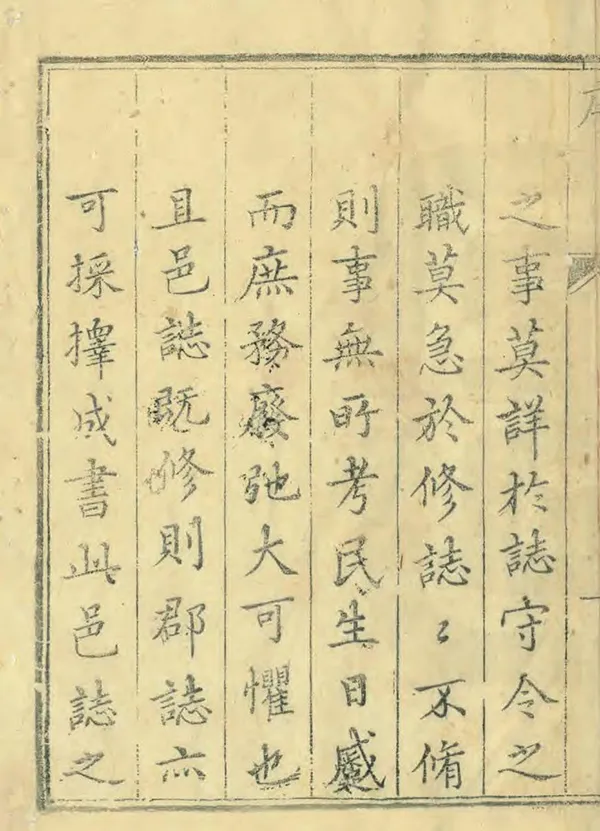 之事莫詳於誌守令之
職莫急於修誌〻不脩
則事無所考民生日蹙
而庶務廢弛大可懼也
且邑誌既修則郡誌亦
可採擇成書此邑誌之